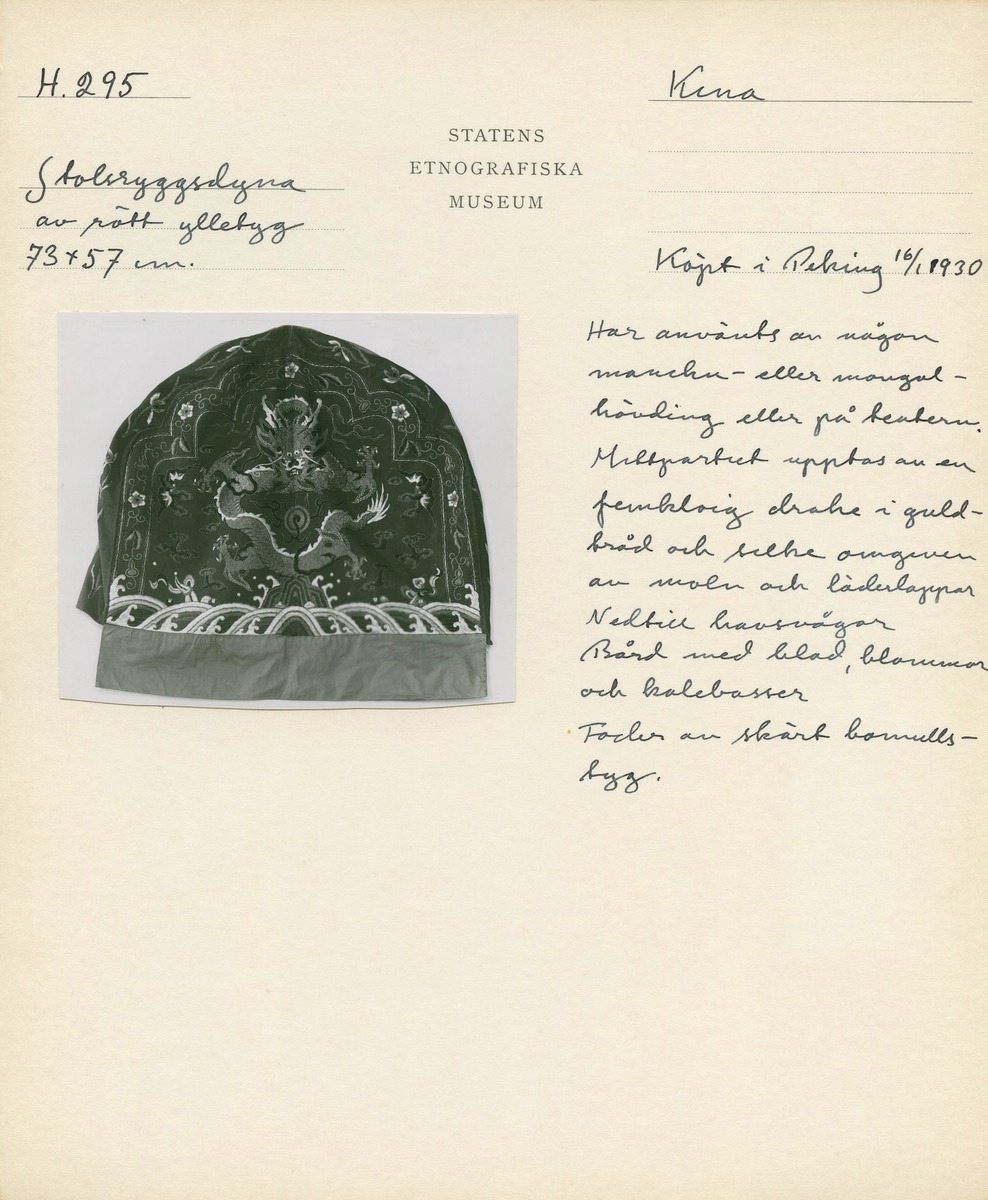 H. 295
Kina
STATENS
ETNOGRAFISKA
MUSEUM
Stolsryggsdyna
av rött ylletyg
73 x 57 cm.
Köpt i Peking 16/1 1930
Har använts av någon
manchu- eller mongol-
hövding eller på teatern.
Mittpartiet upptas av en
femkloig drake i guld-
tråd och silke omgiven
av moln och läderlappar
Nedtill havsvågor
Bård med blad, blommor
och kalebasser
Foder av skärt bomulls-
tyg.